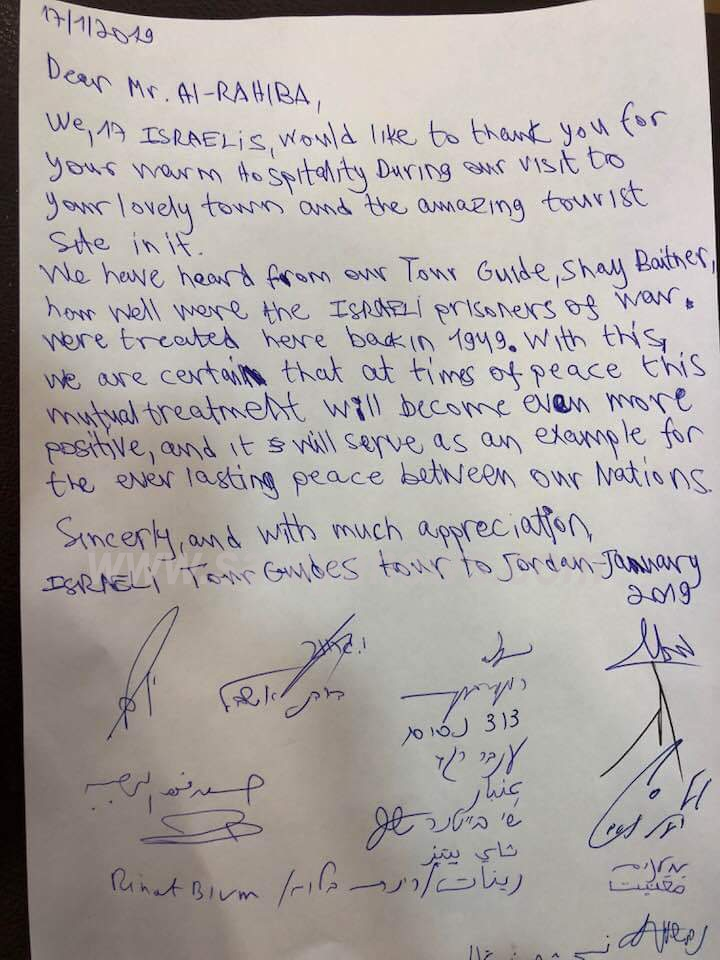 17/1/2019
Dear Mr. Al-RAHIBA,
We, 17 ISRAELis, would like to thank you for
your warm Hospitality During our visit to
your lovely town and the amazing tourist
Site in it.
We have heard from our Tour Guide, Shay Baitner,
how well were the ISRAELI prisoners of war.
were treated here back in 1949. With this,
we are certain that at times of peace this
mutual treatment will become even more
positive, and it will serve as an example for
the ever lasting peace between our Nations.
Sincerly, and with much appreciation,
ISRAELI Tour Guides tour to Jordan-January
2019
ענבר
עنבار
שי ביטנר
شاي
Rinat Blum / רינת בלום / رينات